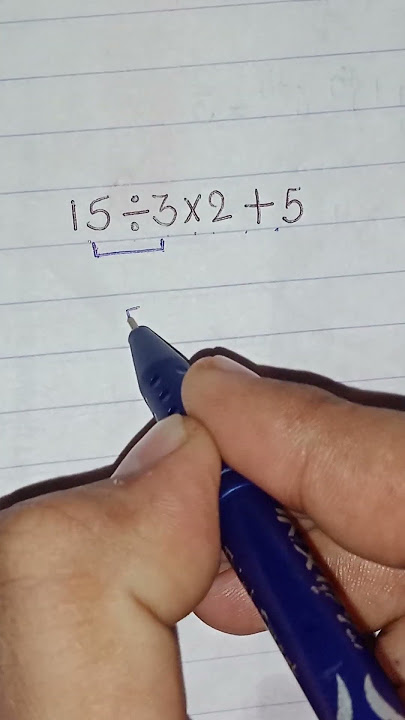 15÷3×2+5